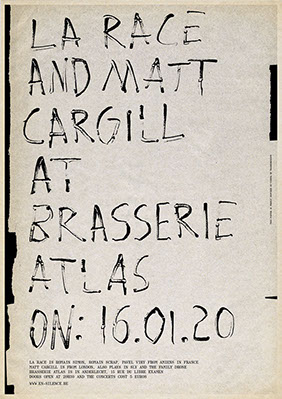 LA RACE
AND MATT
CARGILL
AT
BRASSERIE
ATLAS
ON: 16.01.20
LA RACE IS ROMAIN SIMON, ROMAIN SCRAP, PAVEL VIRY FROM AMIENS IN FRANCE
MATT CARGILL IS FROM LONDON, ALSO PLAYS IN SLY AND THE FAMILY DRONE
BRASSERIE ATLAS IS IN ANDERLECHT, 15 RUE DU LIBRE EXAMEN
DOORS OPEN AT 20H00 AND THE CONCERTS COST 5 EUROS
WWW.EN-SILENCE.BE